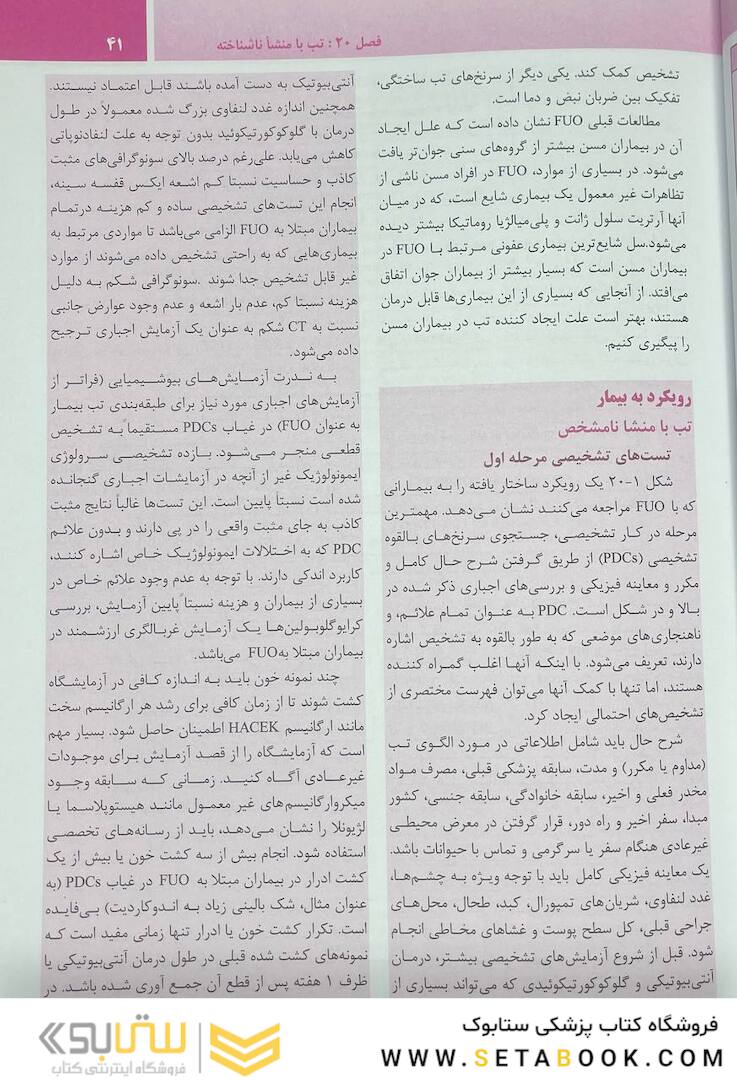 فصل ۲۰ : تب با منشأ ناشناخته
۴۱
تشخیص کمک کند. یکی دیگر از سرنخ‌های تب ساختگی،
تفکیک بین ضربان نبض و دما است.
مطالعات قبلی FUO نشان داده است که علل ایجاد
آن در بیماران مسن بیشتر از گروه‌های سنی جوان‌تر یافت
می‌شود. در بسیاری از موارد، FUO در افراد مسن ناشی از
تظاهرات غیر معمول یک بیماری شایع است، که در میان
آنها آرتریت سلول ژانت و پلی‌میالژیا روماتیکا بیشتر دیده
می‌شود.سل شایع‌ترین بیماری عفونی مرتبط با FUO در
بیماران مسن است که بسیار بیشتر از بیماران جوان اتفاق
می‌افتد. از آنجایی که بسیاری از این بیماری‌ها قابل درمان
هستند، بهتر است علت ایجاد کننده تب در بیماران مسن
را پیگیری کنیم.
رویکرد به بیمار
تب با منشا نامشخص
تست‌های تشخیصی مرحله اول
شکل ۱-۲۰ یک رویکرد ساختار یافته را به بیمارانی
که با FUO مراجعه می‌کنند نشان می‌دهد. مهمترین
مرحله در کار تشخیصی، جستجوی سرنخ‌های بالقوه
تشخیصی (PDCs) از طریق گرفتن شرح حال کامل و
مکرر و معاینه فیزیکی و بررسی‌های اجباری ذکر شده در
بالا و در شکل است. PDC به عنوان تمام علائم، و
ناهنجاری‌های موضعی که به طور بالقوه به تشخیص اشاره
دارند، تعریف می‌شود. با اینکه آنها اغلب گمراه کننده
هستند، اما تنها با کمک آنها می‌توان فهرست مختصری از
تشخیص‌های احتمالی ایجاد کرد.
شرح حال باید شامل اطلاعاتی در مورد الگوی تب
(مداوم یا مکرر) و مدت، سابقه پزشکی قبلی، مصرف مواد
مخدر فعلی و اخیر، سابقه خانوادگی، سابقه جنسی، کشور
مبدا، سفر اخیر و راه دور، قرار گرفتن در معرض محیطی
غیرعادی هنگام سفر یا سرگرمی و تماس با حیوانات باشد.
یک معاینه فیزیکی کامل باید با توجه ویژه به چشم‌ها،
غدد لنفاوی، شریان‌های تمپورال، کبد، طحال، محل‌های
جراحی قبلی، کل سطح پوست و غشاهای مخاطی انجام
شود. قبل از شروع آزمایش‌های تشخیصی بیشتر، درمان
آنتی‌بیوتیکی و گلوکوکورتیکوئیدی که می‌تواند بسیاری از
آنتی‌بیوتیک به دست آمده باشند قابل اعتماد نیستند.
همچنین اندازه غدد لنفاوی بزرگ شده معمولاً در طول
درمان با گلوکوکورتیکوئید بدون توجه به علت لنفادنوپاتی
کاهش می‌یابد. علی‌رغم درصد بالای سونوگرافی‌های مثبت
کاذب و حساسیت نسبتا کم اشعه ایکس قفسه سینه،
انجام این تست‌های تشخیصی ساده و کم هزینه درتمام
بیماران مبتلا به FUO الزامی می‌باشد تا مواردی مرتبط به
بیماری‌هایی که به راحتی تشخیص داده می‌شوند از موارد
غیر قابل تشخیص جدا شوند .سونوگرافی شکم به دلیل
هزینه نسبتا کم، عدم بار اشعه و عدم وجود عوارض جانبی
نسبت به CT شکم به عنوان یک آزمایش اجباری ترجیح
داده می‌شود.
به ندرت آزمایش‌های بیوشیمیایی (فراتر از
آزمایش‌های اجباری مورد نیاز برای طبقه‌بندی تب بیمار
به عنوان FUO) در غیاب PDCs مستقیماً به تشخیص
قطعی منجر می‌شود. بازده تشخیصی سرولوژی
ایمونولوژیک غیر از آنچه در آزمایشات اجباری گنجانده
شده است نسبتاً پایین است. این تست‌ها غالباً نتایج مثبت
کاذب به جای مثبت واقعی را در پی دارند و بدون علائم
PDC که به اختلالات ایمونولوژیک خاص اشاره کنند،
کاربرد اندکی دارند. با توجه به عدم وجود علائم خاص در
بسیاری از بیماران و هزینه نسبتاً پایین آزمایش، بررسی
کرایوگلوبولین‌ها یک آزمایش غربالگری ارزشمند در
بیماران مبتلا بهFUO می‌باشد.
چند نمونه خون باید به اندازه کافی در آزمایشگاه
کشت شوند تا از زمان کافی برای رشد هر ارگانیسم سخت
مانند ارگانیسم HACEK اطمینان حاصل شود. بسیار مهم
است که آزمایشگاه را از قصد آزمایش برای موجودات
غیرعادی آگاه کنید. زمانی که سابقه وجود
میکروارگانیسم‌های غیر معمول مانند هیستوپلاسما یا
لژیونلا را نشان می‌دهد، باید از رسانه‌های تخصصی
استفاده شود. انجام بیش از سه کشت خون یا بیش از یک
کشت ادرار در بیماران مبتلا به FUO در غیاب PDCs (به
عنوان مثال، شک بالینی زیاد به اندوکاردیت) بی‌فایده
است. تکرار کشت خون یا ادرار تنها زمانی مفید است که
نمونه‌های کشت شده قبلی در طول درمان آنتی‌بیوتیکی یا
ظرف ۱ هفته پس از قطع آن جمع آوری شده باشد. در
فروشگاه کتاب پزشکی ستابوک
WWW.SETABOOK.COM
ستابوک
فروشگاه اینترنتی کتاب